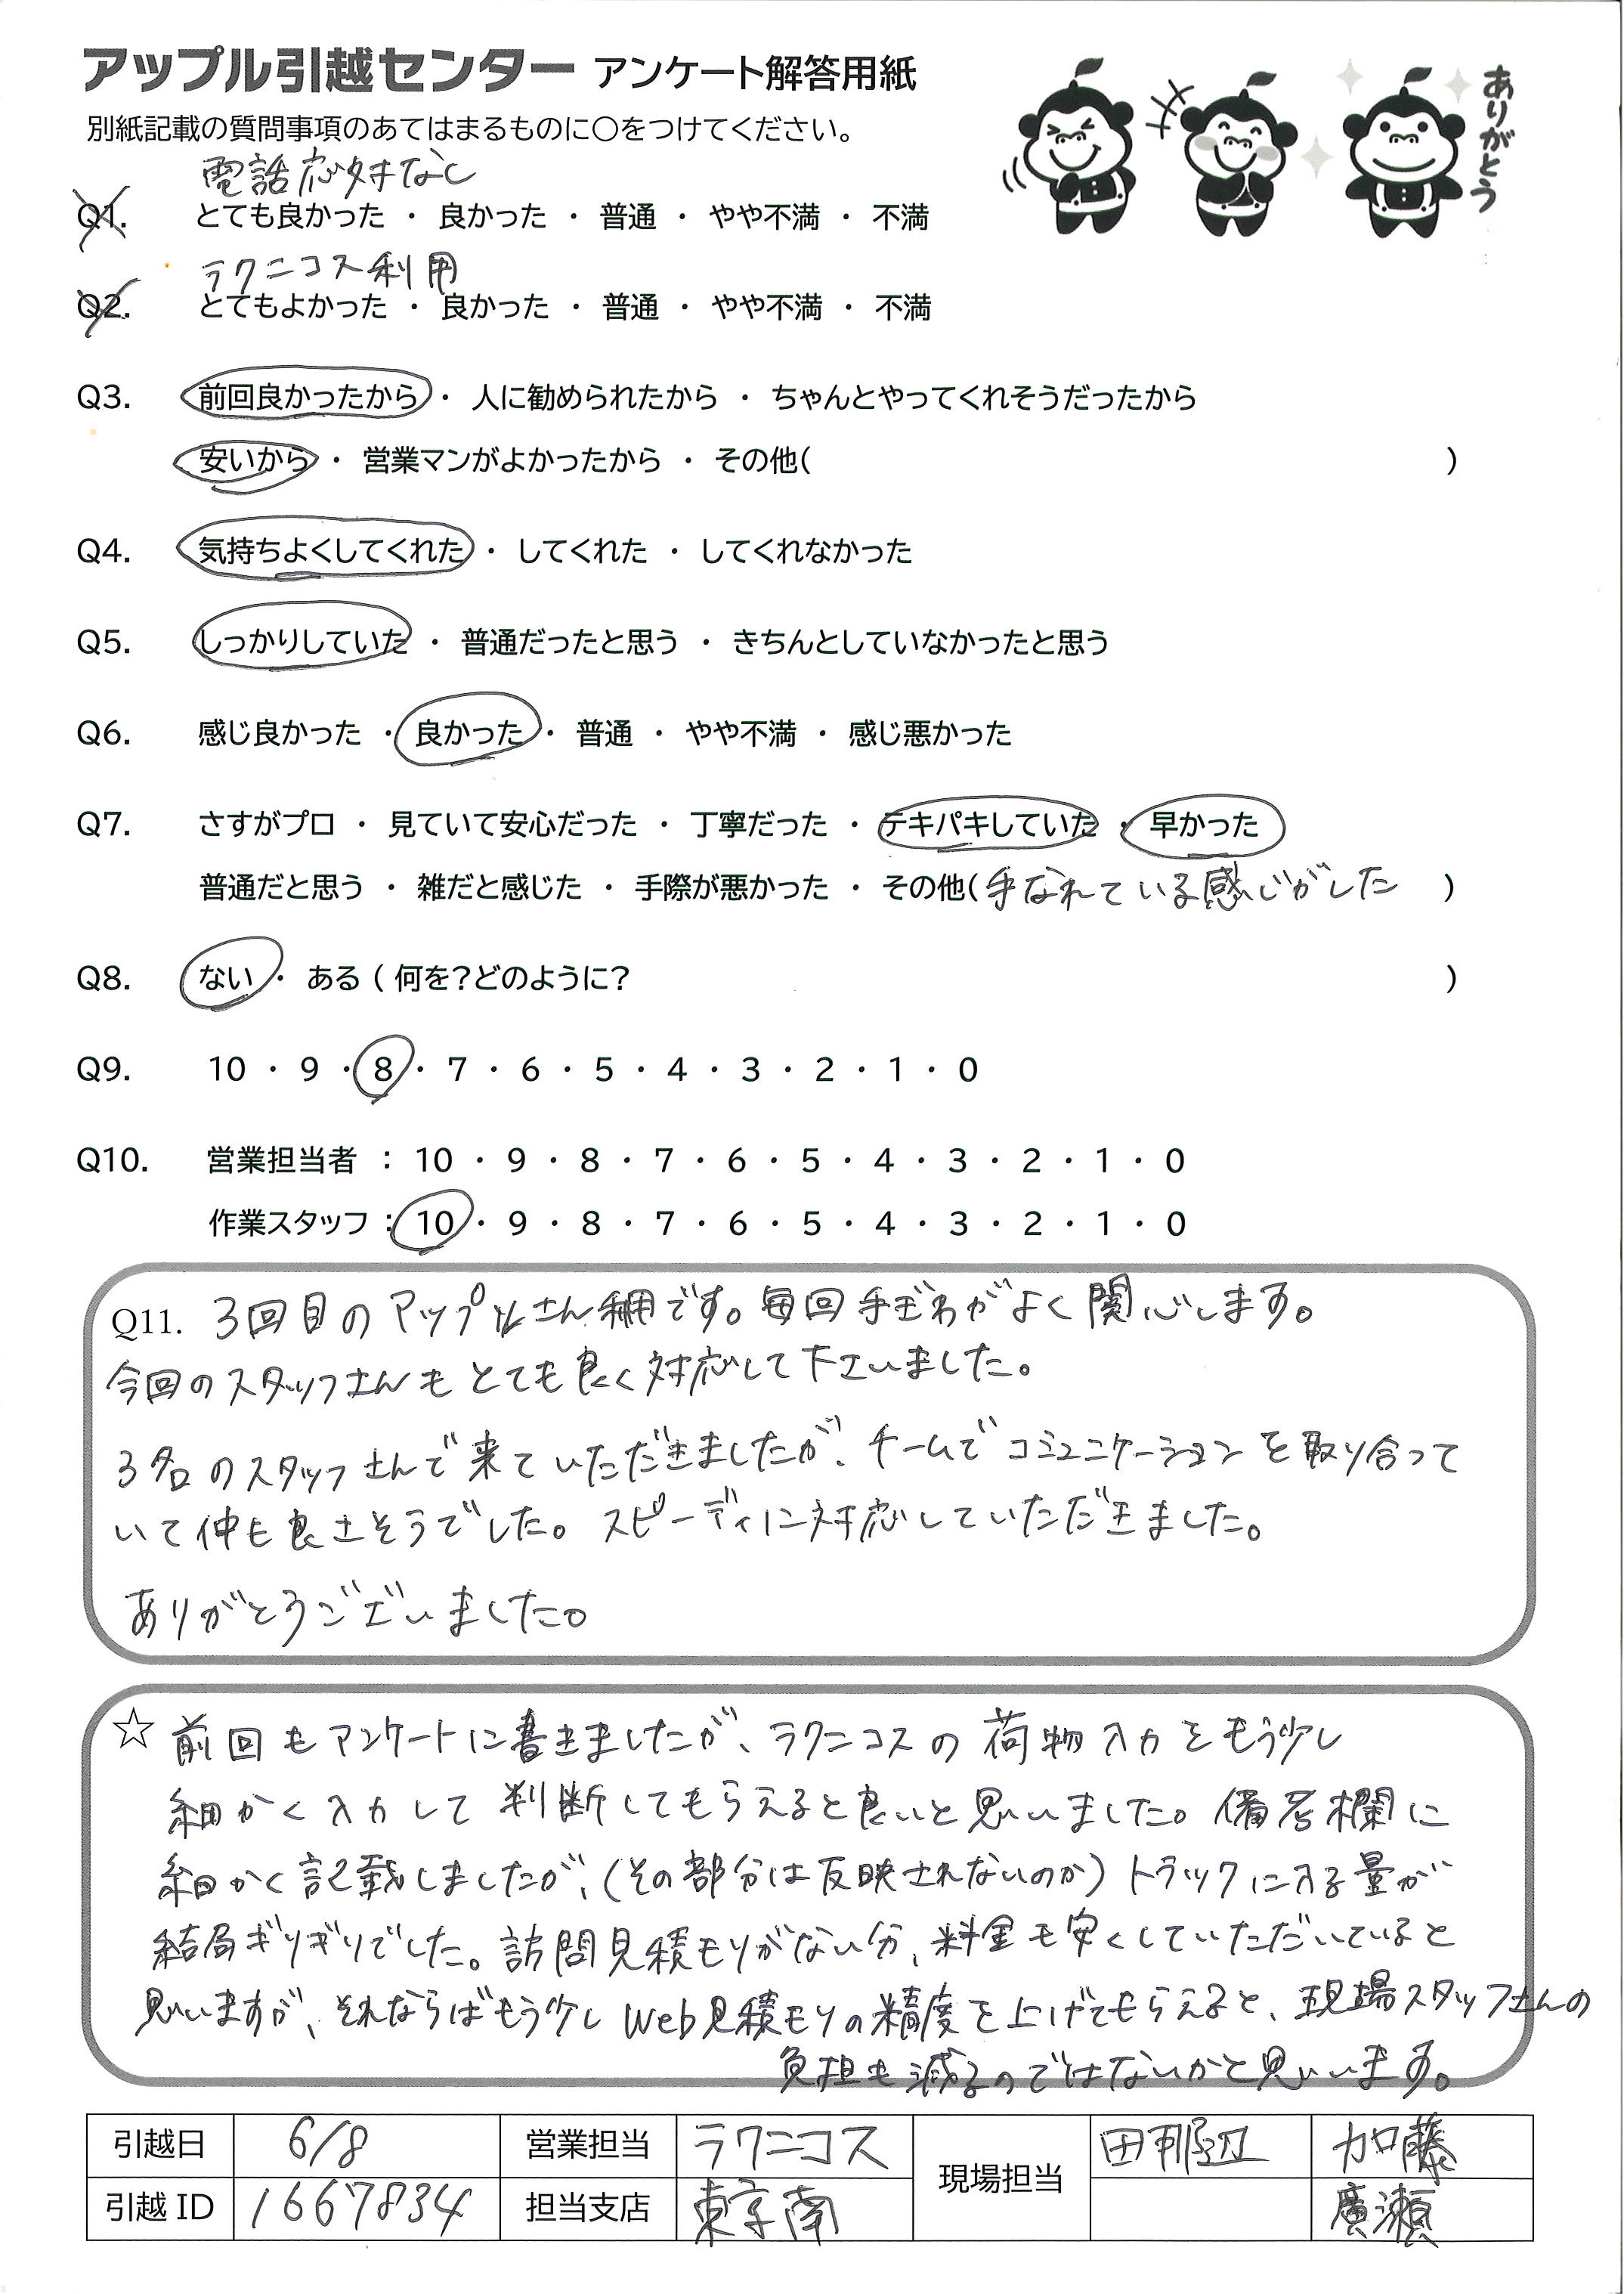 アップル引越センター アンケート解答用紙
ありがとう
別紙記載の質問事項のあてはまるものに○をつけてください。
電話応対なし
Q1. とても良かった ・ 良かった ・ 普通 ・ やや不満 ・ 不満
ラクニコス利用
Q2. とてもよかった ・ 良かった ・ 普通 ・ やや不満 ・ 不満
Q3. 前回良かったから ・ 人に勧められたから ・ ちゃんとやってくれそうだったから
安いから ・ 営業マンがよかったから ・ その他( )
Q4. 気持ちよくしてくれた ・ してくれた ・ してくれなかった
Q5. しっかりしていた ・ 普通だったと思う ・ きちんとしていなかったと思う
Q6. 感じ良かった ・ 良かった ・ 普通 ・ やや不満 ・ 感じ悪かった
Q7. さすがプロ ・ 見ていて安心だった ・ 丁寧だった ・ テキパキしていた ・ 早かった
普通だと思う ・ 雑だと感じた ・ 手際が悪かった ・ その他(手なれている感じがした )
Q8. ない ・ ある ( 何を?どのように? )
Q9. 10 ・ 9 ・ 8 ・ 7 ・ 6 ・ 5 ・ 4 ・ 3 ・ 2 ・ 1 ・ 0
Q10. 営業担当者 : 10 ・ 9 ・ 8 ・ 7 ・ 6 ・ 5 ・ 4 ・ 3 ・ 2 ・ 1 ・ 0
作業スタッフ : 10 ・ 9 ・ 8 ・ 7 ・ 6 ・ 5 ・ 4 ・ 3 ・ 2 ・ 1 ・ 0
Q11. 3回目のアップルさん利用です。毎回手ぎわがよく関心します。
今回のスタッフさんもとても良く対応して下さいました。
3名のスタッフさんで来ていただきましたが、チームでコミュニケーションを取り合って
いて仲も良さそうでした。スピーディに対応していただきました。
ありがとうございました。
☆ 前回もアンケートに書きましたが、ラクニコスの荷物入力をもう少し
細かく入力して判断してもらえると良いと思いました。備考欄に
細かく記載しましたが、(その部分は反映されないのか)トラックに入る量が
結局ギリギリでした。訪問見積モリがない分、料金も安くしていただいていると
思いますが、それならばもう少しWeb見積モリの精度を上げてもらえると、現場スタッフさんの
負担も減るのではないかと思います。
引越日 6/8 営業担当 ラクニコス 現場担当 田那辺 加藤
引越 ID 1667834 担当支店 東京南 廣瀬